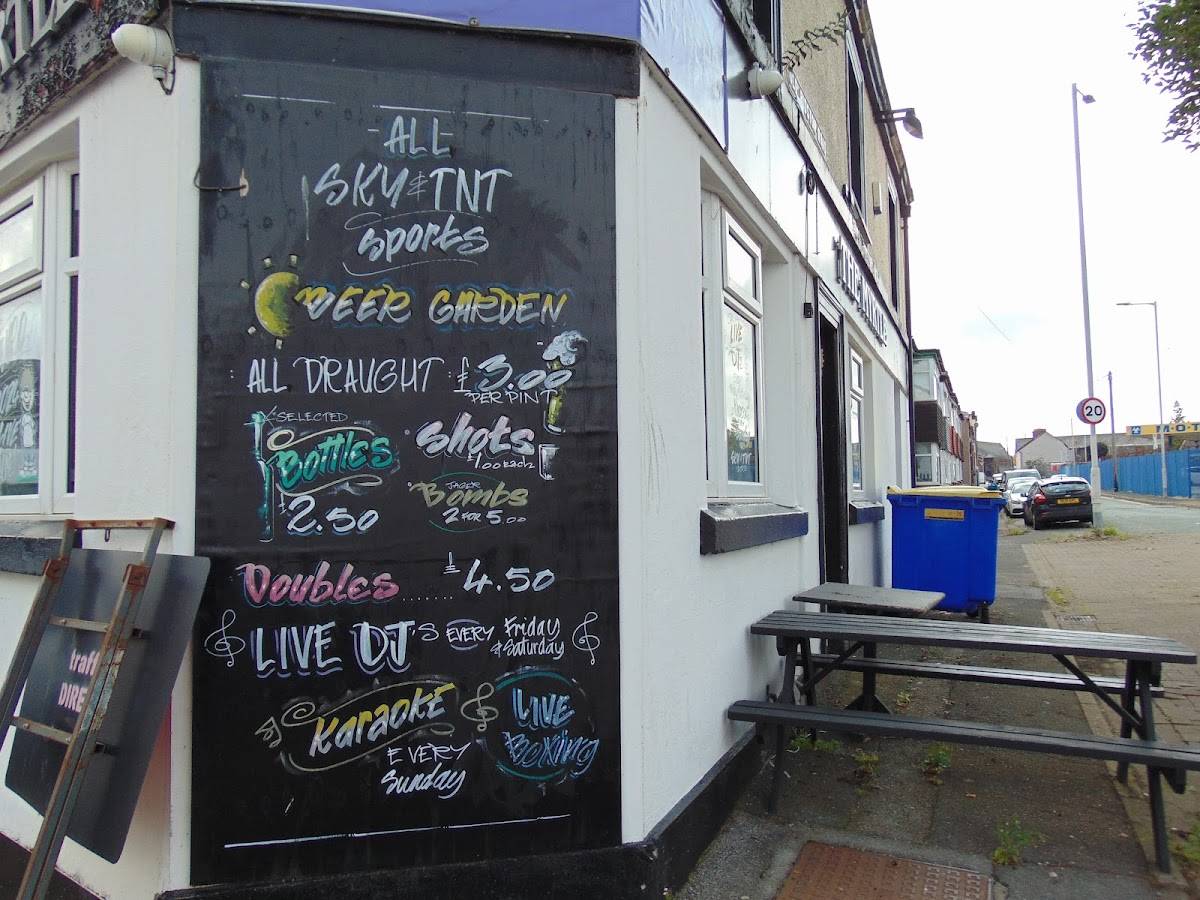 ALL
SKY & TNT
Sports
BEER GARDEN
ALL DRAUGHT : £3.00
PER PINT
SELECTED
Bottles
£2.50
Shots
1.00 EACH
JAGER
Bombs
2 FOR 5.00
Doubles ....... £4.50
LIVE DJ'S EVERY Friday
& Saturday
Karaoke
EVERY
Sunday
LIVE
Boxing
traf
DIRE
LIVE
20